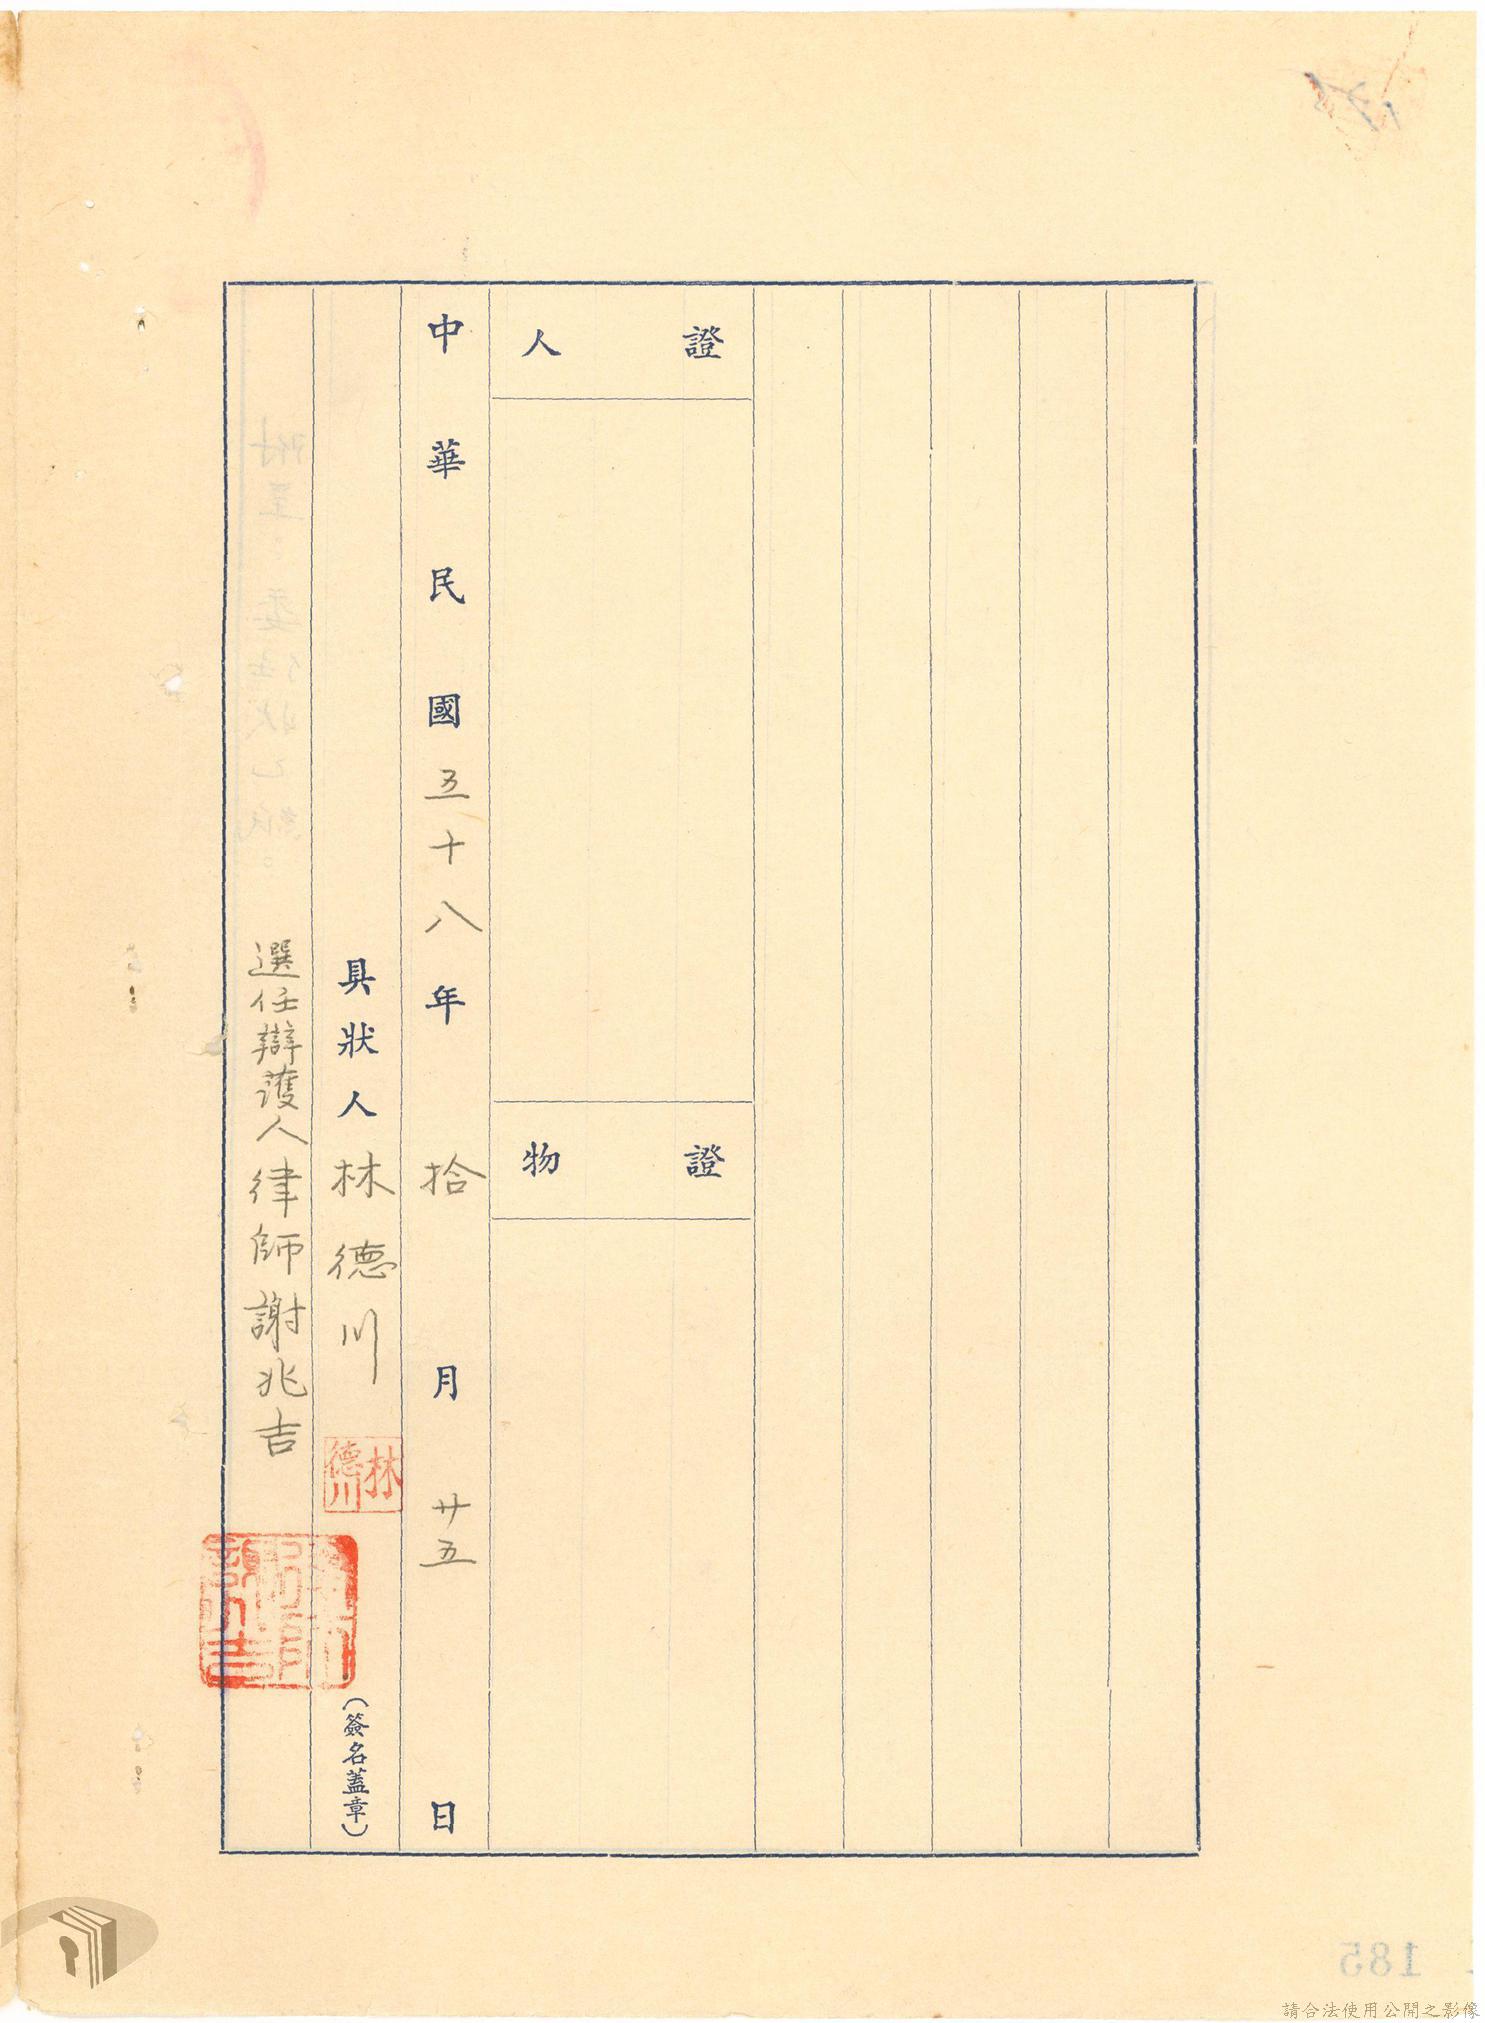 證人
證物
中華民國五十八年拾月廿五日
具狀人林德川
林德川
(簽名蓋章)
選任辯護人律師謝兆吉
185
請合法使用公開之影像